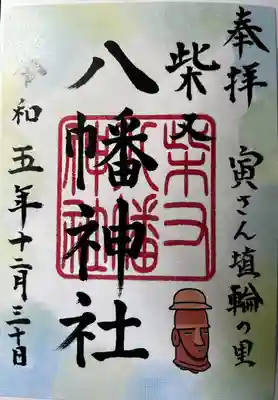 奉拝
寅さん埴輪の里
柴又
八幡神社
令和五年十二月三十日
柴又
八幡
神社